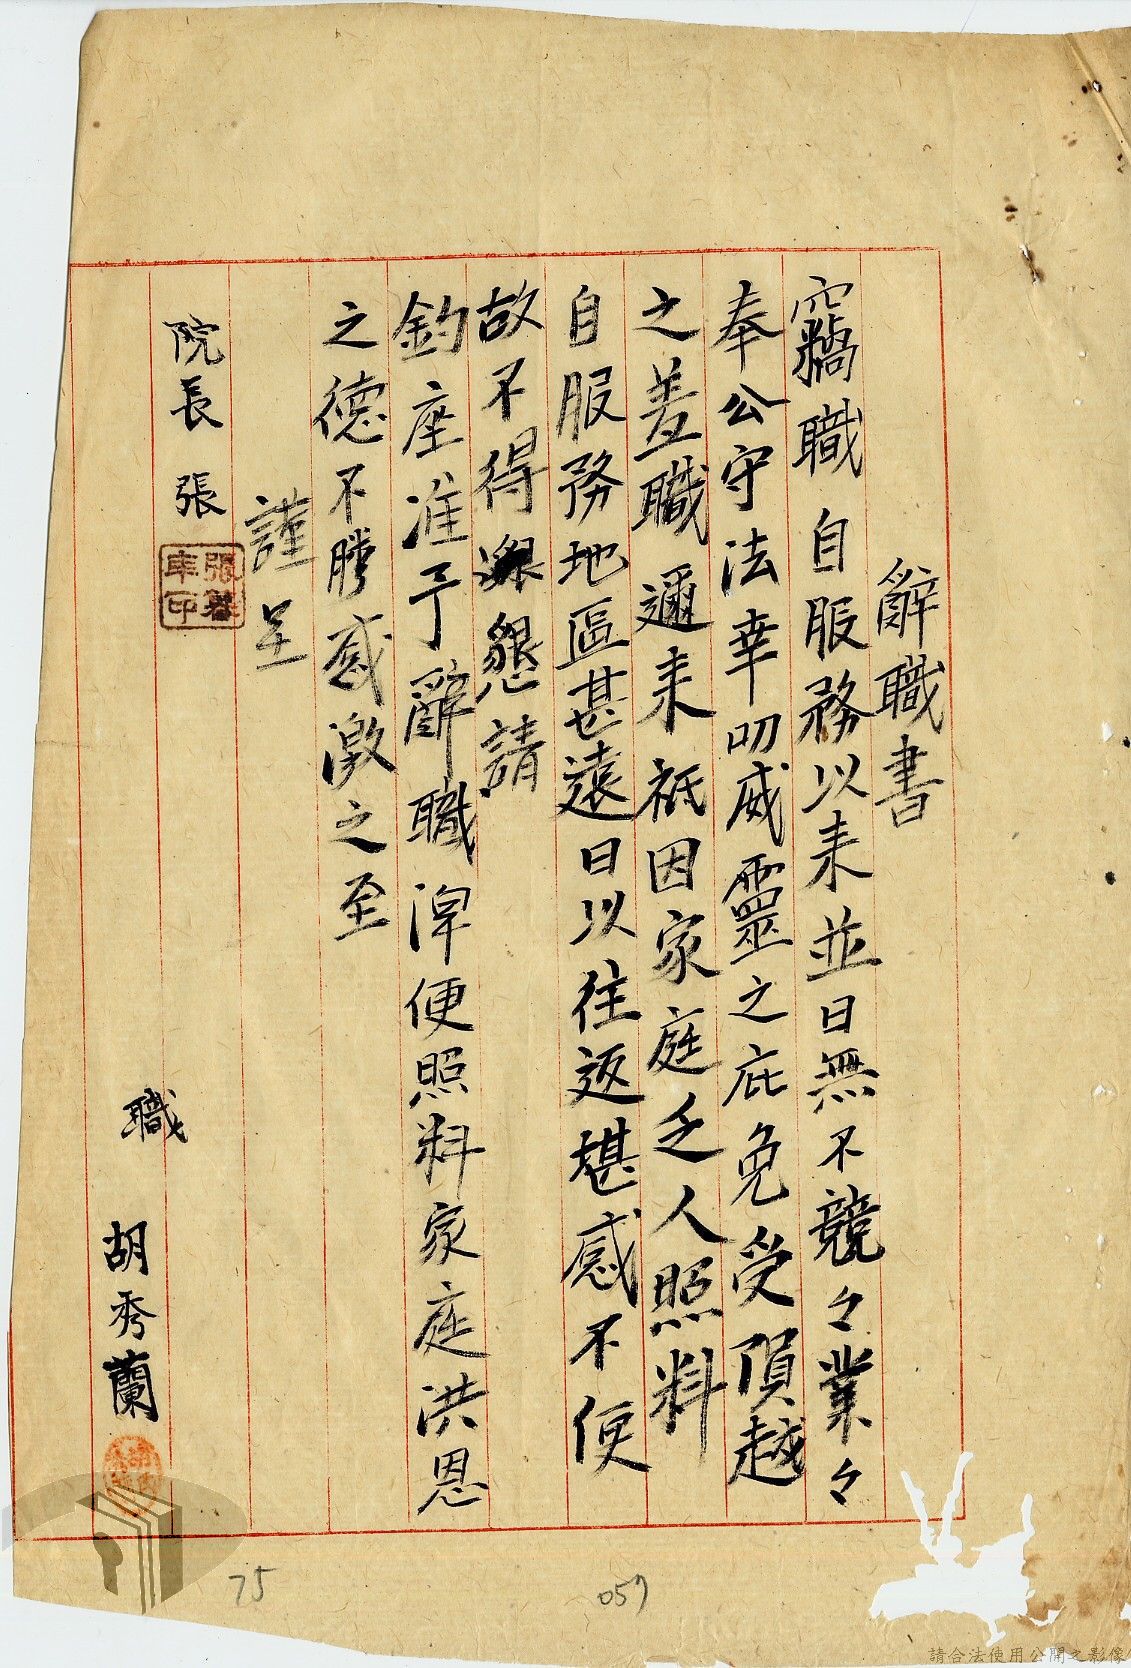 辭職書
竊職自服務以来並日無不競々業々
奉公守法幸叨威靈之庇免受隕越
之羞職邇来祇因家庭乏人照料
自服務地區甚遠日以往返甚感不便
故不得懇請
鈞座准予辭職俾便照料家庭洪恩
之德不勝感激之至
謹呈
院長張
職 胡秀蘭
75
057
請合法使用公開之影像